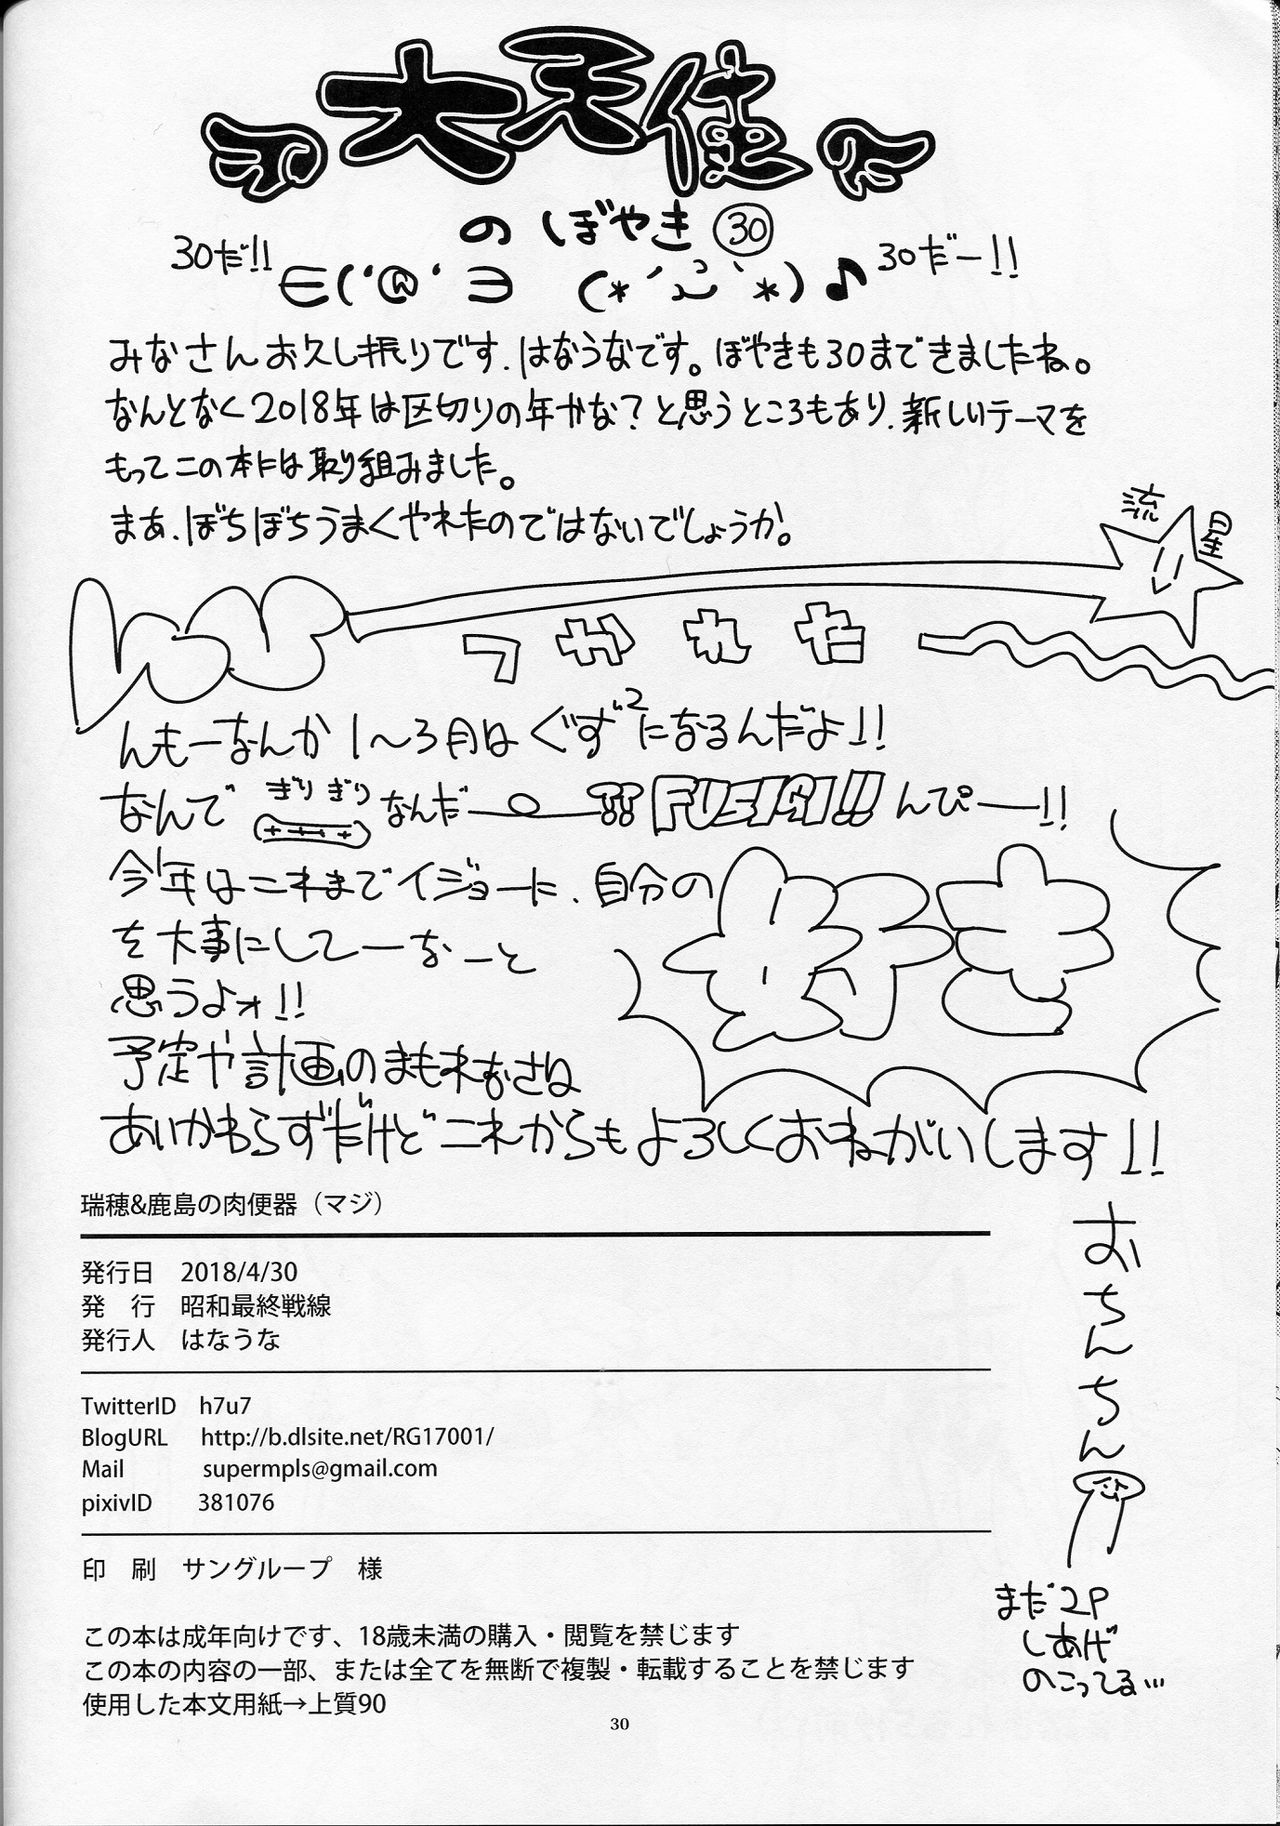 大天使
のぼやき㉚
30だ!!
30だー!!
みなさんお久し振りです.はなうなです。ぼやきも30まできましたね。
なんとなく2018年は区切りの年かな?と思うところもあり、新しいテーマを
もってこの本には取り組みました。
まあ、ぼちぼちうまくやれたのではないでしょうか。
流星
つかれた
んもーなんか1〜3月はぐず²になるんだよ!!
なんでぎりぎりなんだー??FUSIGI!!んぴー!!
今年はこれまでイジョーに、自分の好き
を大事にしてーなーと
思うよォ!!
予定や計画のまもれなさは
あいかわらずだけどこれからもよろしくおねがいします!!
おちんちん
まだ2P
しあげ
のこってる…
瑞穂&鹿島の肉便器（マジ）
発行日 2018/4/30
発 行 昭和最終戦線
発行人 はなうな
TwitterID h7u7
BlogURL http://b.dlsite.net/RG17001/
Mail supermpls@gmail.com
pixivID 381076
印 刷 サングループ 様
この本は成年向けです、18歳未満の購入・閲覧を禁じます
この本の内容の一部、または全てを無断で複製・転載することを禁じます
使用した本文用紙→上質90
30